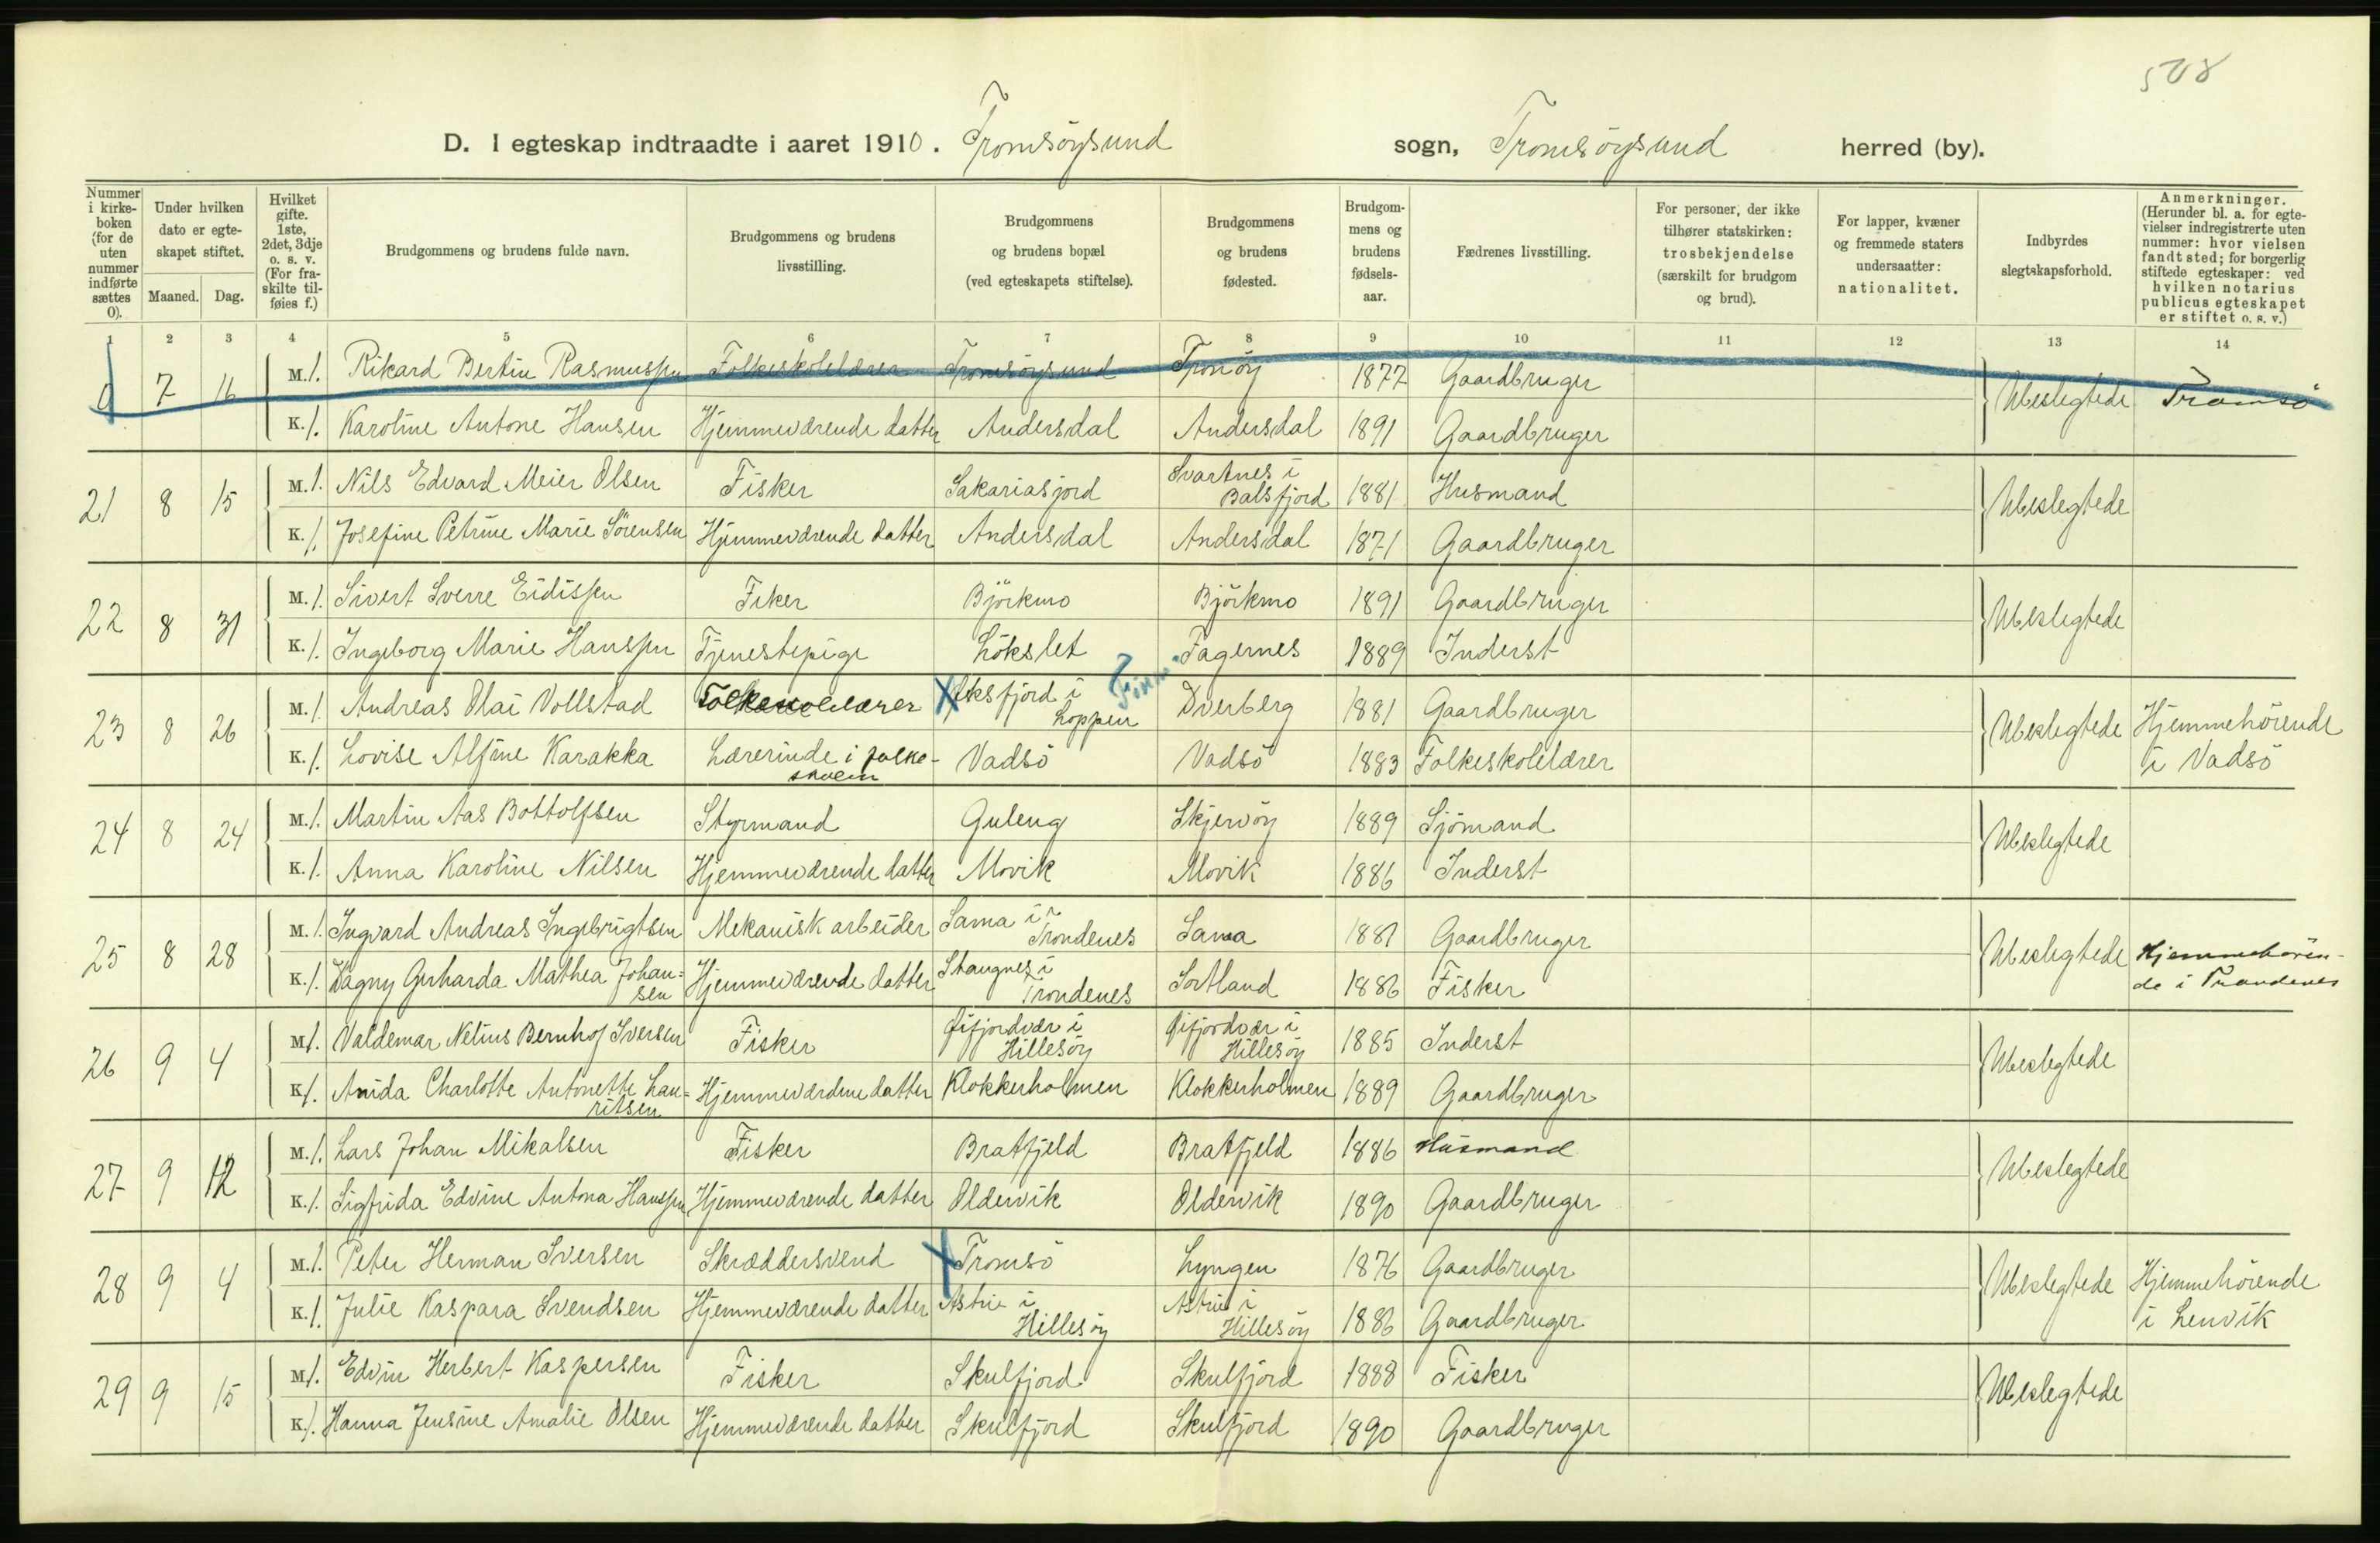 508
D. I egteskap indtraadte i aaret 1910. Tromsöysund sogn, Tromsöysund herred (by).
Nummer i kirkeboken (for de uten nummer indførte sættes 0).
Under hvilken dato er egteskapet stiftet.
Maaned. Dag.
Hvilket gifte. 1ste, 2det, 3dje o. s. v. (For fraskilte tilføies f.)
Brudgommens og brudens fulde navn.
Brudgommens og brudens livsstilling.
Brudgommens og brudens bopæl (ved egteskapets stiftelse).
Brudgommens og brudens fødested.
Brudgommens og brudens fødselsaar.
Fædrenes livsstilling.
For personer, der ikke tilhører statskirken: trosbekjendelse (særskilt for brudgom og brud).
For lapper, kvæner og fremmede staters undersaatter: nationalitet.
Indbyrdes slegtskapsforhold.
Anmerkninger. (Herunder bl. a. for egtevielser indregistrerte uten nummer: hvor vielsen fandt sted; for borgerlig stiftede egteskaper: ved hvilken notarius publicus egteskapet er stiftet o. s. v.)
1 2 3 4 5 6 7 8 9 10 11 12 13 14
0 7 16 M. 1. Rikard Bertin Rasmussen Folkeskolelærer Tromsöysund Tromöy 1877 Gaardbruger Ubeslegtede Tromsö
K. 1. Karoline Antone Hansen Hjemmeværende datter Andersdal Andersdal 1891 Gaardbruger
21 8 15 M. 1. Nils Edvard Meier Olsen Fisker Sakariasjord Svartnes i Balsfjord 1881 Husmand Ubeslegtede
K. 1. Josefine Petrine Marie Sörensen Hjemmeværende datter Andersdal Andersdal 1871 Gaardbruger
22 8 31 M. 1. Sivert Sverre Eidissen Fiker Björkmo Björkmo 1891 Gaardbruger Ubeslegtede
K. 1. Ingeborg Marie Hanssen Tjenestepige Lökslet Fagernes 1889 Inderst
23 8 26 M. 1. Andreas Olai Vollstad Folkeskolelærer Öksfjord i Loppen Finm. Dverberg 1881 Gaardbruger Ubeslegtede Hjemmehörende i Vadsö
K. 1. Lovise Alfine Karakka Lærerinde i folkeskolen Vadsö Vadsö 1883 Folkeskolelærer
24 8 24 M. 1. Martin Aas Bottolfsen Styrmand Guleng Skjervöy 1889 Sjömand Ubeslegtede
K. 1. Anna Karoline Nilsen Hjemmeværende datter Movik Movik 1886 Inderst
25 8 28 M. 1. Ingvard Andreas Ingebrigtsen Mekanisk arbeider Sama i Trondenes Sama 1881 Gaardbruger Ubeslegtede Hjemmehörende i Trondenes
K. 1. Dagny Gerharda Mathea Johansen Hjemmeværende datter Stangnes i Trondenes Sortland 1886 Fisker
26 9 4 M. 1. Valdemar Nelius Bernhof Iversen Fisker Gifjordvær i Hillesöy Gifjordvær i Hillesöy 1885 Inderst Ubeslegtede
K. 1. Anida Charlotte Antonette Lauritsen Hjemmeværdene datter Klokkerholmen Klokkerholmen 1889 Gaardbruger
27 9 12 M. 1. Lars Johan Mikalsen Fisker Bratfjeld Bratfjeld 1886 Husmand Ubeslegtede
K. 1. Sigfrida Edvine Antona Hanssen Hjemmeværende datter Oldervik Oldervik 1890 Gaardbruger
28 9 4 M. 1. Peter Herman Iversen Skræddersvend Tromsö Lyngen 1876 Gaardbruger Ubeslegtede Hjemmehörende i Lenvik
K. 1. Julie Kaspara Svendsen Hjemmeværende datter Hillesöy Hillesöy 1886 Gaardbruger
29 9 15 M. 1. Edvin Herbert Kaspersen Fisker Skulfjord Skulfjord 1888 Fisker Ubeslegtede
K. 1. Hanna Jensine Amalie Olsen Hjemmeværende datter Skulfjord Skulfjord 1890 Gaardbruger